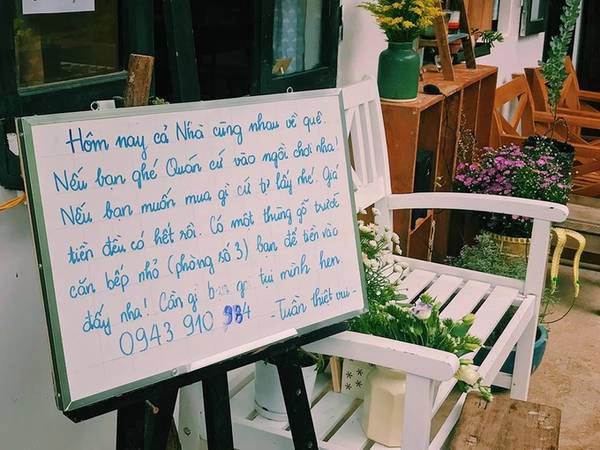 Hôm nay cả Nhà cùng nhau về quê.
Nếu bạn ghé Quán cứ vào ngồi chơi nha!
Nếu bạn muốn mua gì cứ tự lấy nhé. Giá
tiền đều có hết rồi. Có một thùng gỗ trước
căn bếp nhỏ (phòng số 3) bạn để tiền vào
đấy nha! Cần gì bạn gọi tụi mình hen
0943 910 984 - Tuần thiệt vui -